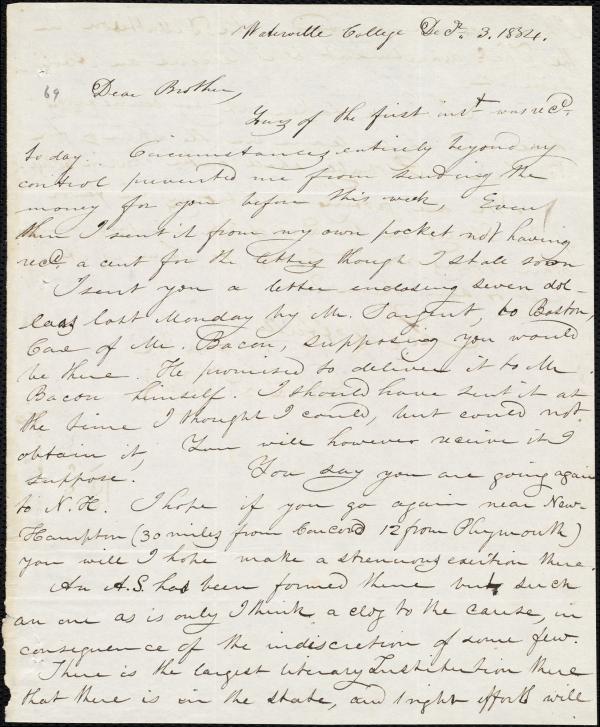 Waterville College Dec. 3. 1834.
69
Dear Brother,
Yours of the first inst was recd.
to day. Circumstances entirely beyond my
control prevented me from sending the
money for you before this week, Even
then I sent it from my own pocket not having
recd. a cent for the letters though I shall soon
I sent you a letter enclosing seven dol-
lars last Monday by Mr. Sargent, to Boston,
Care of Mr. Bacon, supposing you would
be there. He promised to deliver it to Mr.
Bacon himself. I should have sent it at
the time I thought I could, but could not
obtain it, You will however receive it I
suppose. You say you are going again
to N.H. I hope if you go again near New-
Hampton (30 miles from Concord 12 from Plymouth)
you will I hope make a strenuous exertion there.
An A.S. has been formed there but such
an one as is only I think a clog to the cause, in
consequence of the indiscretion of some few.
There is the largest literary Institution there
that there is in the state, and right efforts will